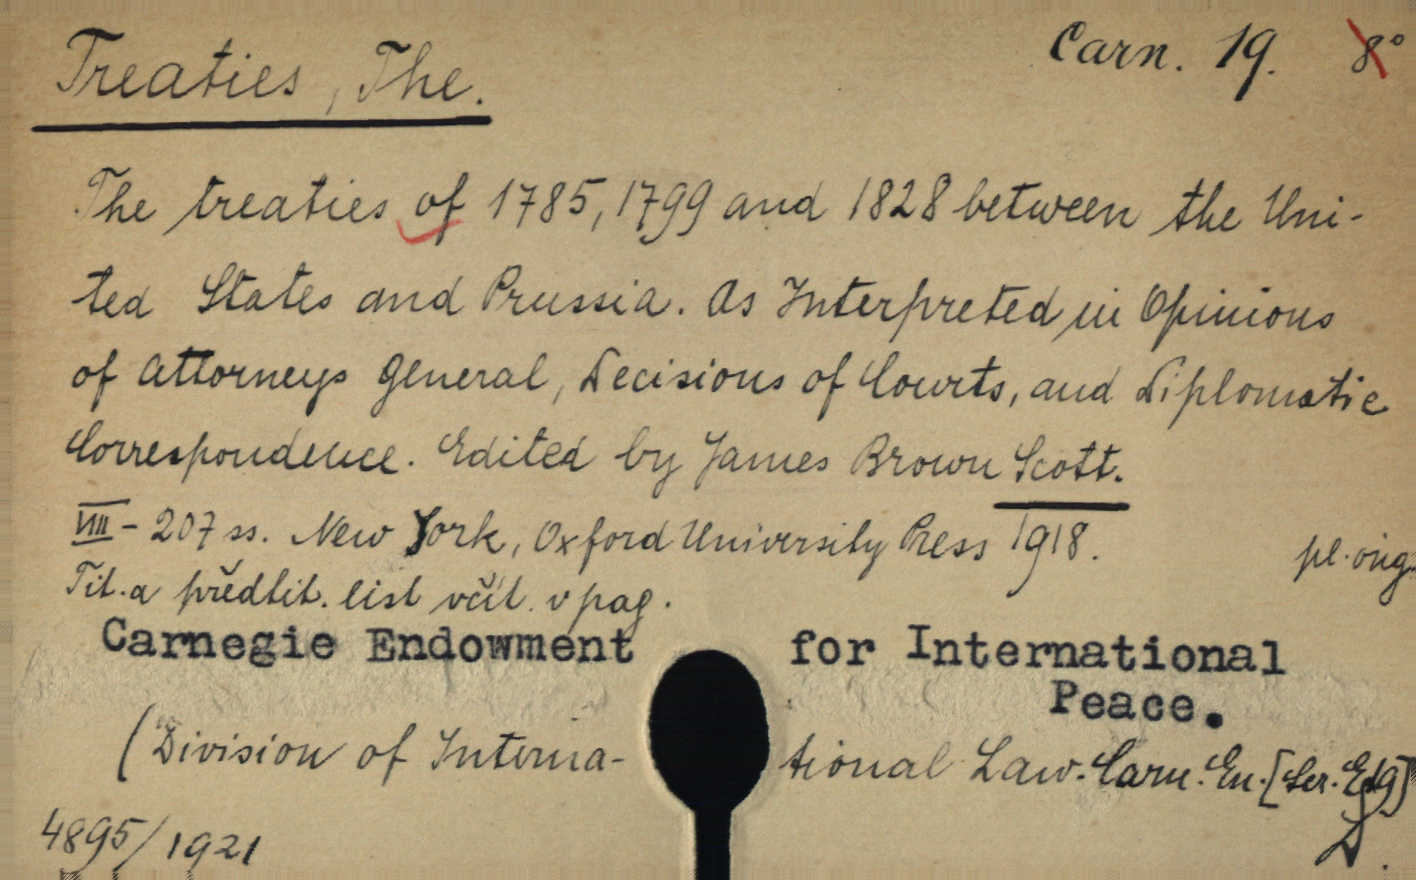 Treaties, The. Carn. 19. 8°
The treaties of 1785, 1799 and 1828 between the Uni-
ted States and Prussia. As Interpreted in Opinions
of Attorneys General, Decisions of Courts, and Diplomatic
Correspondence. Edited by James Brown Scott.
VIII - 207 ss. New York, Oxford University Press 1918. pl. orig.
Tit. a předtit. list včít. v pag.
Carnegie Endowment for International
Peace.
(Division of Interna- tional Law. Carn. En. [Ser.
4895/1921